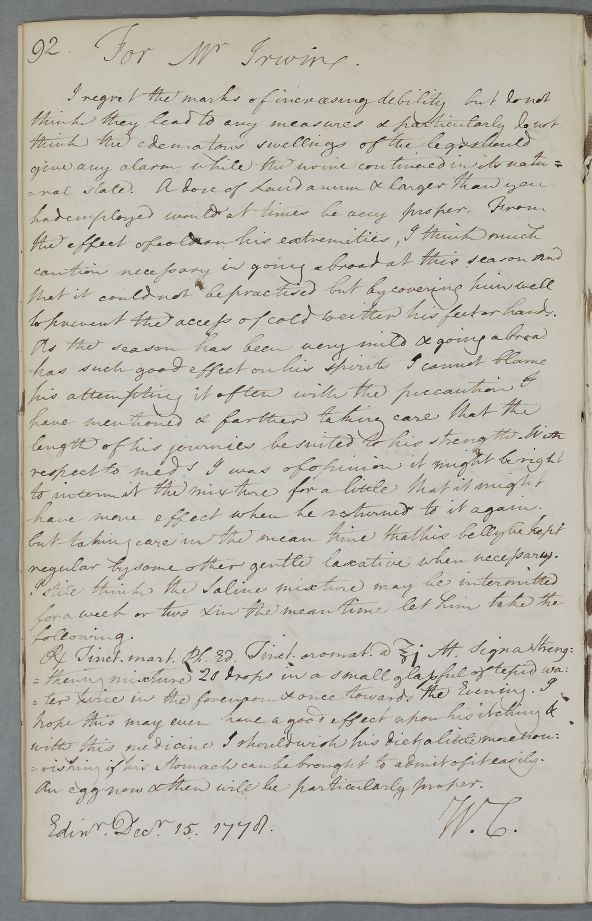 92. For Mr Irwine.
I regret the marks of increasing debility but do not
think they lead to any measures & particularly do not
think the edematous swellings of the legs should
give any alarm while the urine continued in its natu=
=ral state. A dose of Laudanum & larger than you
had employed would at times be very proper. From
the effect of cold on his extremities, I think much
caution necessary in going abroad at this season and
that it could not be practised but by covering him well
to prevent the access of cold weither his feet or hands.
As the season has been very mild & going abroad
has such good effect on his spirits I cannot blame
his attempting it often with the precaution I
have mentioned & farther taking care that the
length of his journies be suited to his strength. With
respect to meds I was of opinion it might be right
to intermit the mixture for a little that it might
have more effect when he returned to it again.
but taking care in the mean time that his belly be kept
regular by some other gentle laxative when necessary.
I still think the Saline mixture may be intermitted
for a week or two & in the mean time let him take the
following.
℞ Tinct. mart. Ph. Ed. Tinct. aromat. a ℥j M. Signa Streng:
=thening mixture 20 drops in a small glassful of tepid wa:
=ter twice in the forenoon & once towards the Evening. I
hope this may even have a good effect upon his itching &
with this medicine I should wish his diet a little more nou:
=rishing if his Stomach can be brought to admit of it easily.
An egg now & then will be particularly proper.
Edinr. Decr. 15. 1778. W.C.